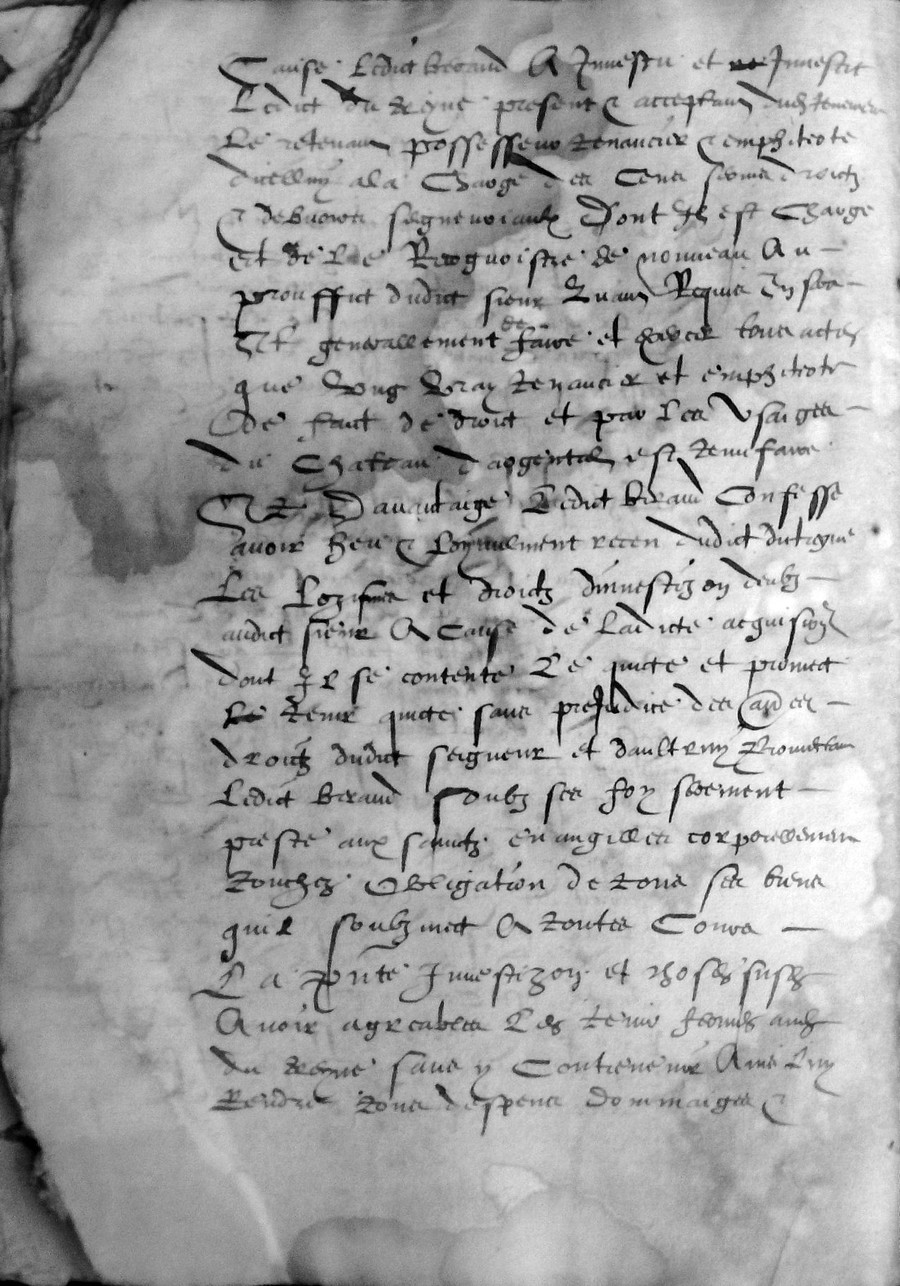 Cause Ledict beraud A Jnvestu et Jnvestit
Ledict du present & acceptant
Le retenant possesseur tenancier & emphiteote
dicelluy a la Charge des Cens droictz
& debvoirs seigneuriaulx Dont Il est Charge
et de Le Recognoistre de nouveau Au
prouffict dudict sieur quant Requis En sera
Et generallement de faire et tous actes
que Vung Vray tenancier et emphiteote
de faict de droict et par Les Vsaiges
du Chateau dargental est tenu faire
Et Davantaige Ledict beraud Confesse
avoir heu & Loyaulment receu dudict
Les et droictz dinvestizon deubz
audict sieur A Cause de Ladicte acquisition
dont Il se contente Le quicte et promect
tenir quicte sans prejudice des aultres
droictz dudict seigneur et daultruy Promettant
Ledict beraud Soubz ses foy serement
preste aux sainctz evangilles corporellement
touchez Obligation de tous ses biens
quil soubzmect A toutes Cours
La pnte Jnvestizon et choses susd
Avoir agreables Les tenir
du sans y Contrevenir Ains Luy
Rendre tous despens dommaiges &